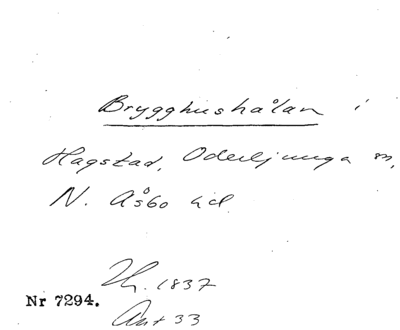 Brygghushålan i
Hagstad, Oderljunga sn,
N. Åsbo hd.
Th. 1837
Nr 7294.
Ant 33